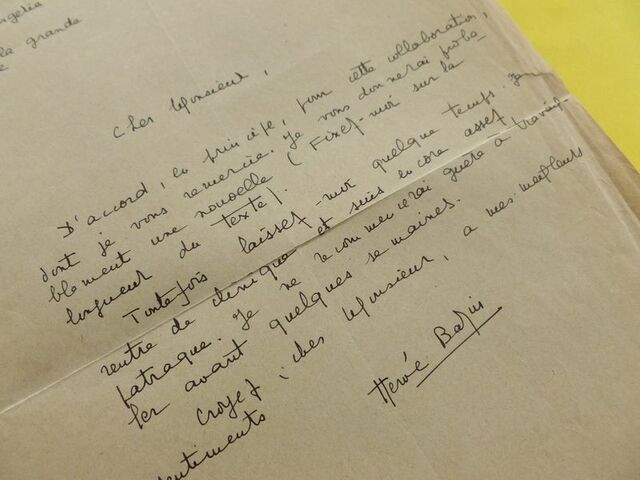 la grande
Cher Monsieur,
D'accord, en principe, pour cette collaboration,
dont je vous remercie. Je vous donnerai proba
blement une nouvelle (Fixez-moi sur la
longueur du texte).
Toutefois laissez-moi quelque temps. Je
rentre de clinique et suis encore assez
patraque. Je ne recommencerai guère à travail-
ler avant quelques semaines.
Croyez, cher Monsieur, à mes meilleurs
sentiments
Hervé Bazin